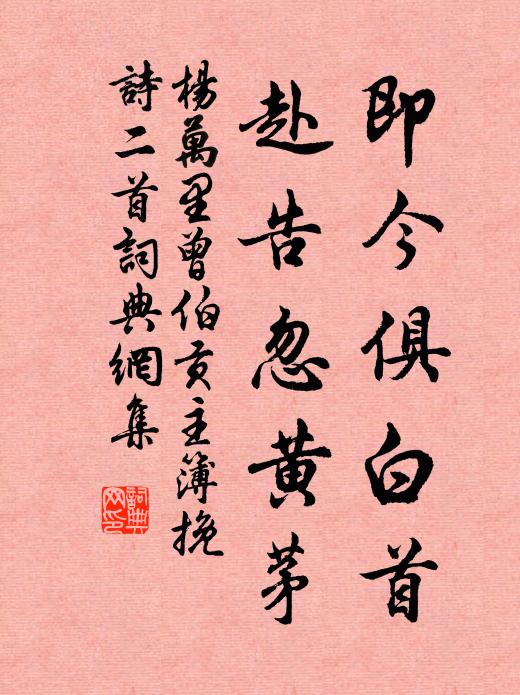 即今俱白首
赴告忽黄茅
楊萬里曾伯貢主簿挽
詩二首詞典網集
詞典网印